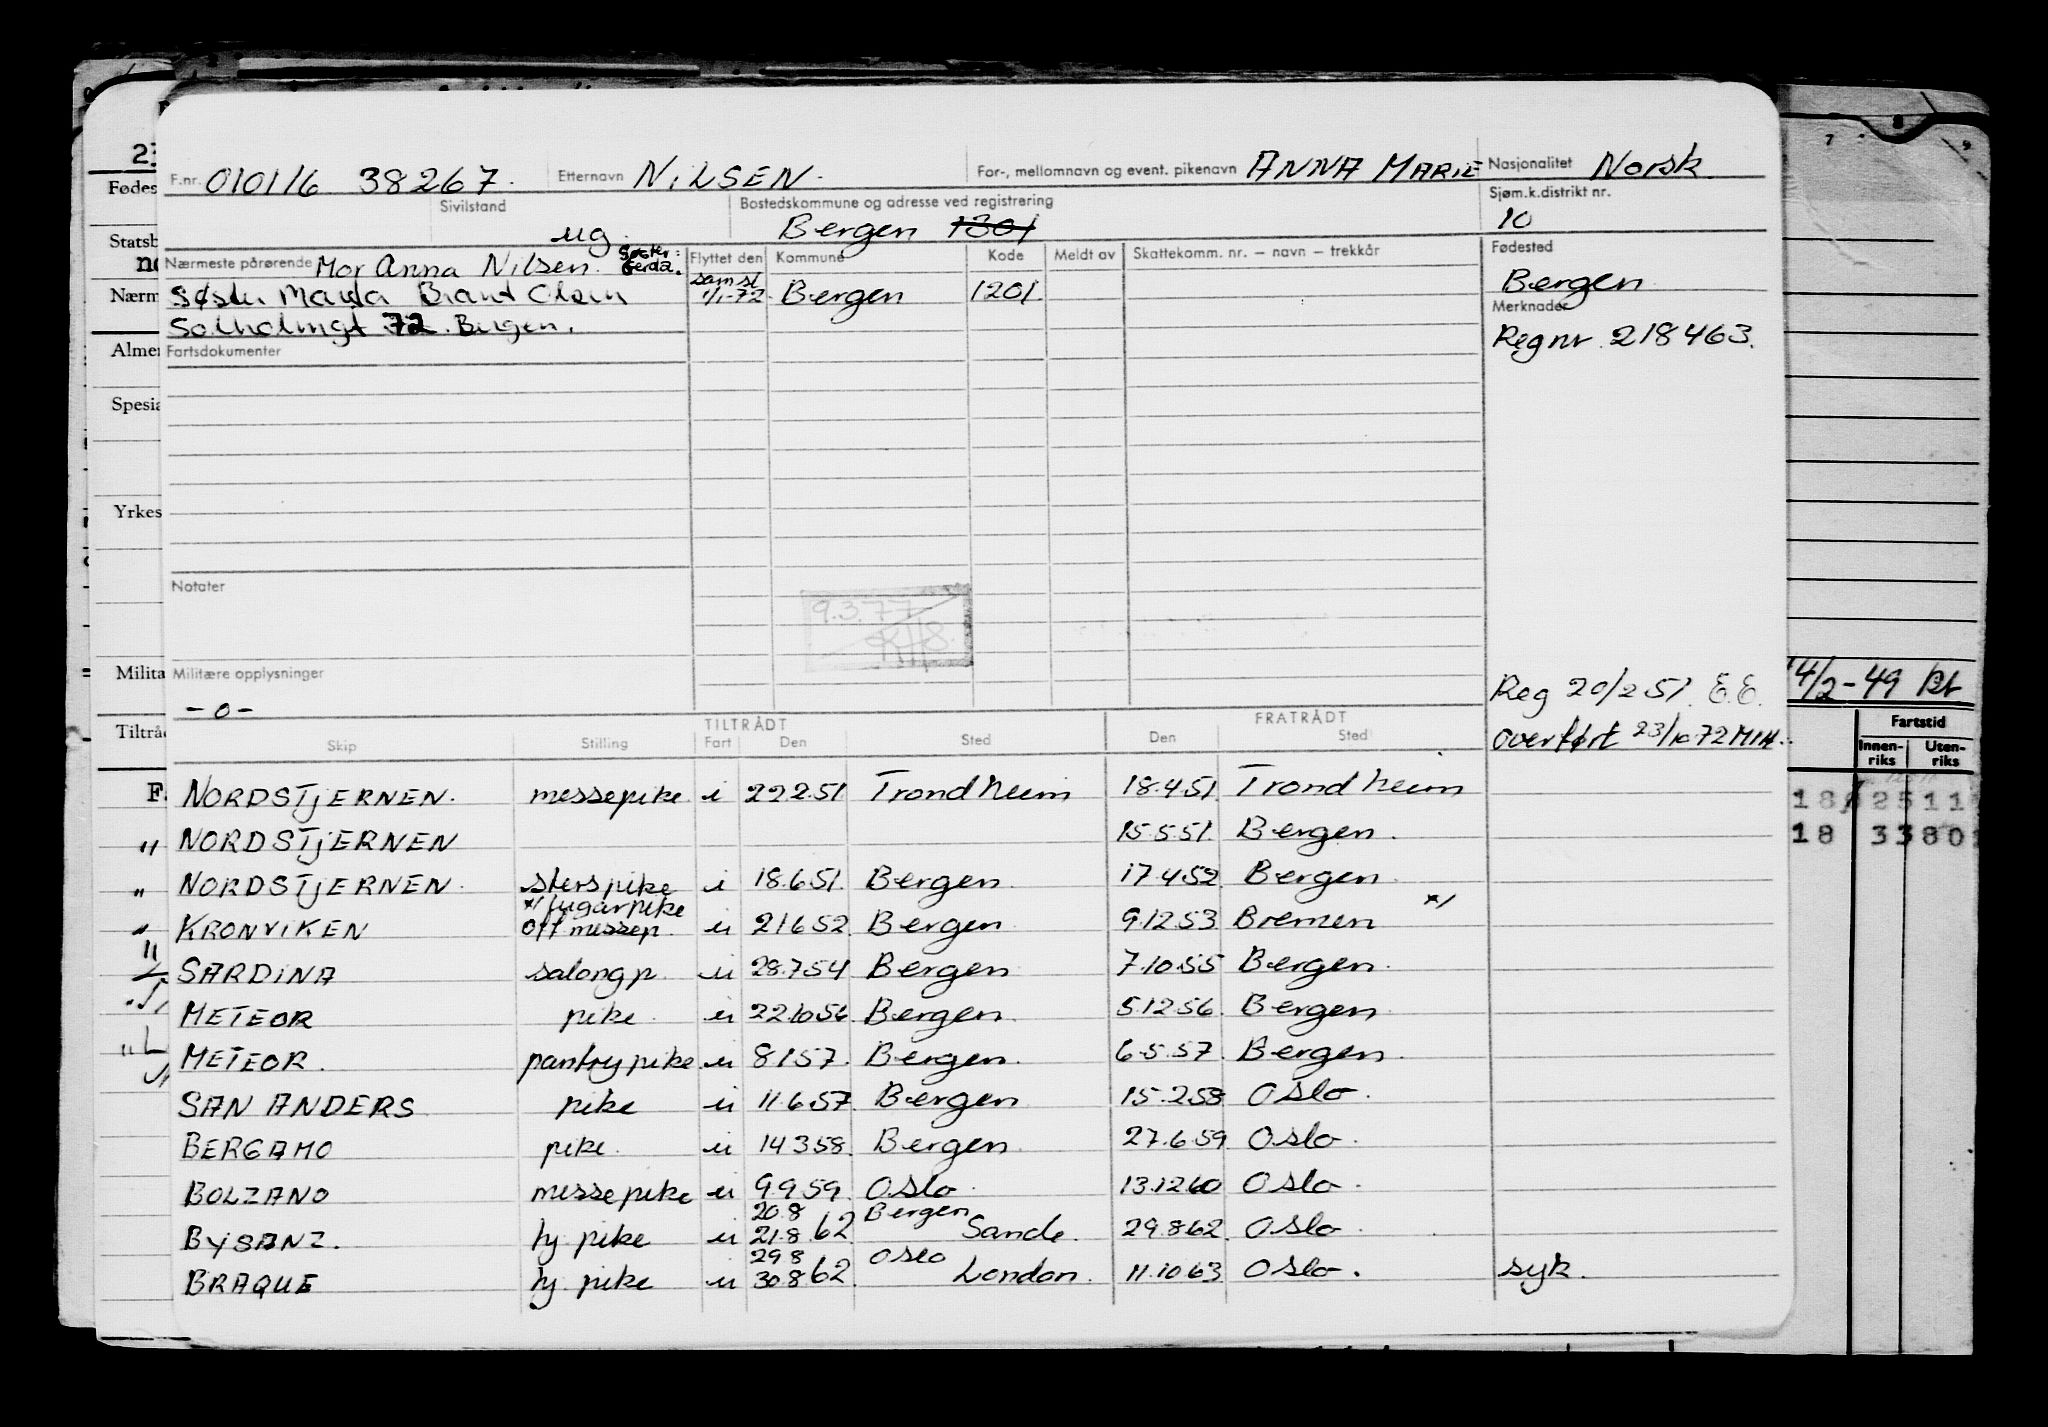 F.nr. 010116 38267. Etternavn NILSEN. For-, mellomnavn og event. pikenavn ANNA MARIE Nasjonalitet Norsk.
Sivilstand ug. Bostedskommune og adresse ved registrering Bergen 1301 Sjøm.k.distrikt nr. 10
Nærmeste pårørende Mor Anna Nilsen. Søster: Gerda. Flyttet den Kommune Kode Meldt av Skattekomm. nr. – navn – trekkår Fødested
Søster Brant Olsen sam st 1/1-72 Bergen 1201 Bergen
Solholmgt 72. Bergen. Merknader
Fartsdokumenter Reg nr. 218463.
Notater
9.3.77
Militære opplysninger
- o -
Reg 20/2 51. E.E.
14/2-49
overført 23/10-72
TILTRÅDT FRATRÅDT
Skip Stilling Fart Den Sted Den Sted
NORDSTJERNEN. messepike i 22.2.51 Trondheim 18.4.51 Trondheim
" NORDSTJERNEN 15.5.51. Bergen.
" NORDSTJERNEN. i 18.6.51. Bergen. 17.4.52 Bergen
x/ lugarpike x/
" KRONVIKEN off messep. u 21.6.52 Bergen 9.12.53 Bremen
" SARDINA salongp. u 28.7.54 Bergen 7.10.55 Bergen.
METEOR pike u 22.10.56 Bergen 5.12.56 Bergen
METEOR. pantrypike u 8.1.57. Bergen. 6.5.57. Bergen.
SAN ANDERS pike u 11.6.57 Bergen 15.2.58 Oslo.
BERGAMO pike. u 14.3.58. Bergen 27.6.59 Oslo.
BOLZANO messepike u 9.9.59. Oslo. 13.12.60 Oslo.
20.8 Bergen
BYSANZ. pike u 21.8.62. Sande. 29.8.62. Oslo.
29.8 Oslo
BRAQUE pike u 30.8.62. London. 11.10.63 Oslo. syk.
Fødes
Statsb
Nærm
Almer
Spesia
Yrkes
Milita
Tiltråd
Fartstid
Innen-riks Uten-riks